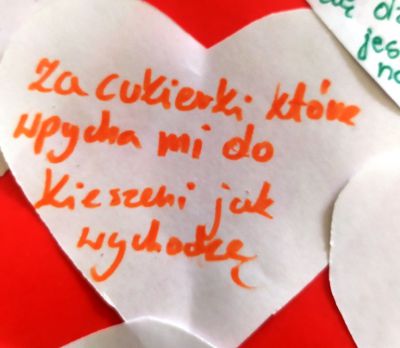 Za cukierki które
wpycha mi do
kieszeni jak
wychodzę
jes